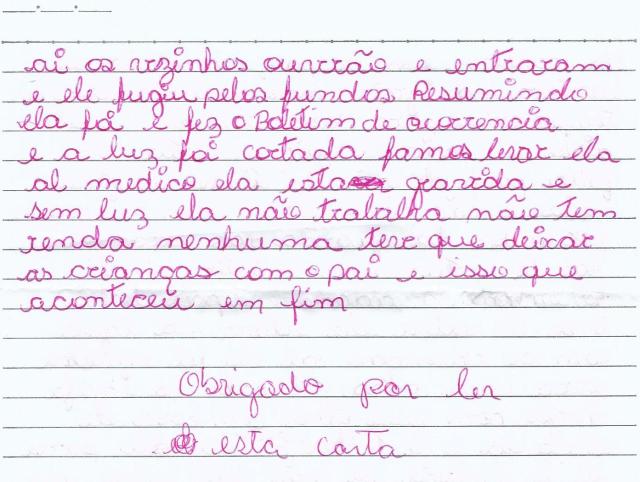 ai os vezinhos ouvirão e entraram
e ele fugiu pelos fundos Resumindo
ela foi e fez o Boletim de ocorrencia
e a luz foi cortada famos levar ela
al medico ela esta gravida e
sem luz ela não trabalha não tem
renda nenhuma teve que deixar
as crianças com o pai e isso que
aconteceu em fim
Obrigado por ler
esta carta